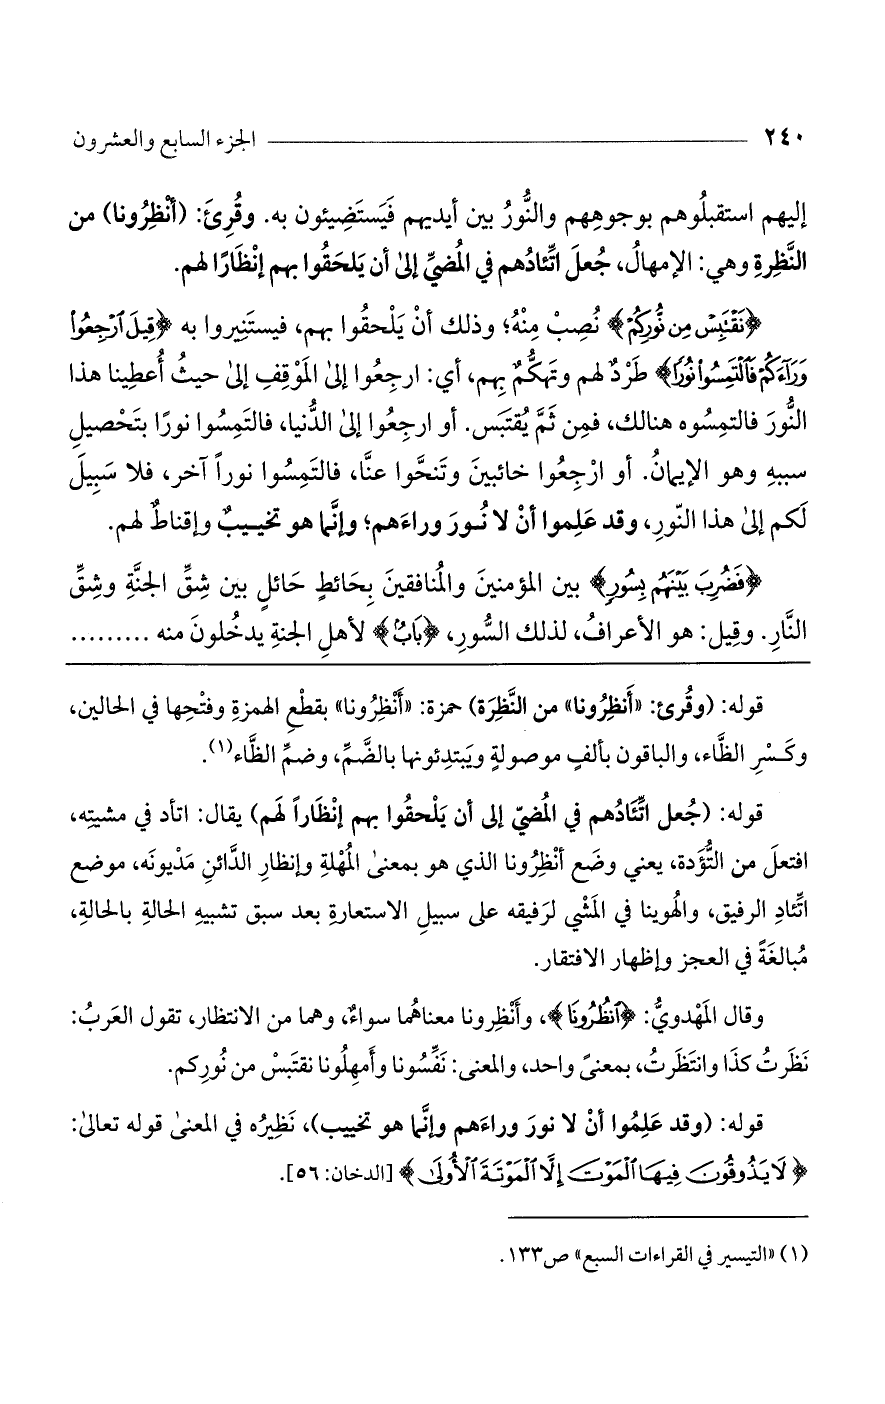 ٢٤٠ الجزء السابع والعشرون
إليهم استقبلُوهم بوجوهِهم والنُّورُ بين أيديهم فَيَستَضِيئون به. وقُرِئَ: (أَنْظِرُونا) من
النَّظِرةِ وهي: الإمهالُ، جُعلَ اتِّئادُهم في المُضيِّ إلىٰ أن يَلحَقُوا بهم إنْظَارًا لهم.
﴿نَقْتَبِسْ مِن نُّورِكُمْ﴾ نُصِبْ مِنْهُ؛ وذلك أنْ يَلْحقُوا بهم، فيستَنِيروا به ﴿قِيلَ ٱرْجِعُواْ
وَرَآءَكُمْ فَٱلْتَمِسُواْ نُورًا﴾ طَرْدٌ لهم وتهكُّمٌ بِهم، أي: ارجِعُوا إلىٰ المَوْقِفِ إلىٰ حيثُ أُعطِينا هذا
النُّورَ فالتمِسُوه هنالك، فمِن ثَمَّ يُقتَبَس. أو ارجِعُوا إلىٰ الدُّنيا، فالتَمِسُوا نورًا بتَحْصيلِ
سببهِ وهو الإيمانُ. أو ارْجِعُوا خائبينَ وتَنحَّوا عنَّا، فالتَمِسُوا نوراً آخر، فلا سَبِيلَ
لَكم إلىٰ هذا النّورِ، وقد عَلِموا أنْ لا نُورَ وراءَهم؛ وإنَّما هو تخيِيبٌ وإقناطٌ لهم.
﴿فَضُرِبَ بَيْنَهُم بِسُورٍ﴾ بين المؤمنينَ والمُنافقينَ بِحَائطٍ حَائلٍ بين شِقِّ الجنَّةِ وشِقِّ
النَّارِ. وقِيل: هو الأعرافُ، لذلك السُّورِ، ﴿بَابٌ﴾ لأهلِ الجنةِ يدخُلونَ منه .........
قوله: (وقُرئ: «أَنظِرُونا» من النَّظِرَة) حمزة: «أَنْظِرُونا» بقطْعِ الهمزةِ وفتْحِها في الحالين،
وكَسْرِ الظَّاء، والباقون بألفٍ موصولةٍ ويَبتدِئونها بالضَّمِّ، وضمِّ الظَّاء(١).
قوله: (جُعل اتِّئَادُهم في المُضيّ إلى أن يَلْحقُوا بهم إنْظَاراً لهَم) يقال: اتأد في مشيتِه،
افتعلَ من التُّؤَدة، يعني وضَع أنْظِرُونا الذي هو بمعنىٰ المُهْلةِ وإنظارِ الدَّائنِ مَدْيونَه، موضع
اتِّئادِ الرفيق، والهُوينا في المَشْيِ لرَفيقه على سبيلِ الاستعارةِ بعد سبق تشبيهِ الحالةِ بالحالةِ،
مُبالغَةً في العجز وإظهار الافتقار.
وقال المَهْدويُّ: ﴿ٱنظُرُونَا﴾، وأَنْظِرونا معناهُما سواءٌ، وهما من الانتظار، تقول العَربُ:
نَظَرتُ كذَا وانتَظَرتُ، بمعنىً واحد، والمعنى: نَفِّسُونا وأَمهِلُونا نقتَبَسْ من نُورِكم.
قوله: (وقد عَلِمُوا أنْ لا نورَ وراءَهم وإنَّما هو تخييب)، نَظِيرُه في المعنىٰ قوله تعالىٰ:
﴿لَا يَذُوقُونَ فِيهَا ٱلْمَوْتَ إِلَّا ٱلْمَوْتَةَ ٱلْأُولَىٰ﴾ [الدخان: ٥٦].
(١) «التيسير في القراءات السبع» ص١٣٣.